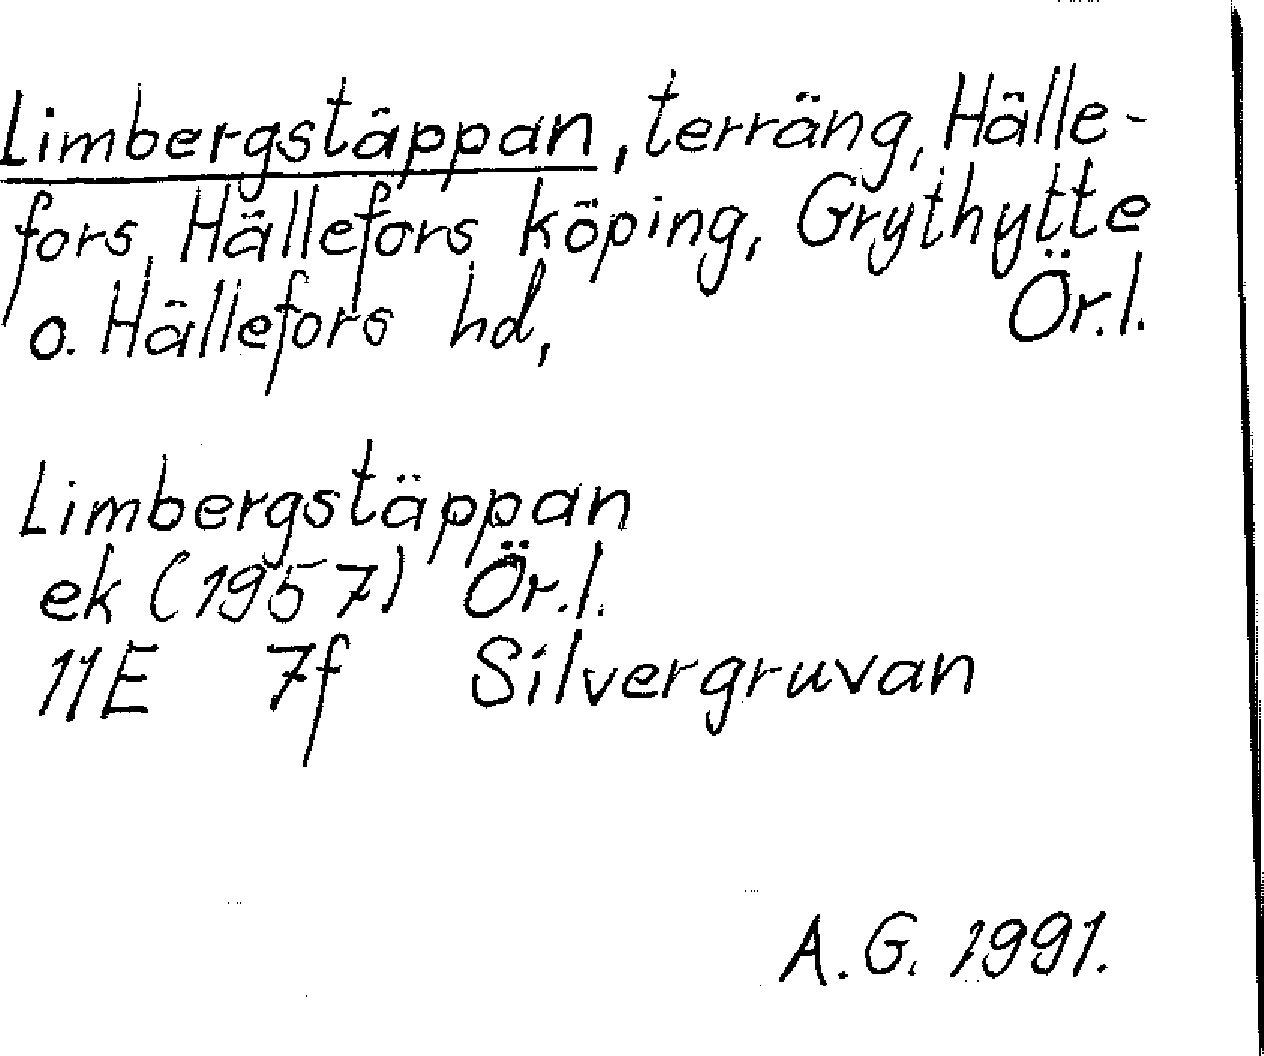 Limbergstäppan, terräng, Hälle-
fors, Hällefors köping, Grythytte
o. Hällefors hd, Ör.l.
Limbergstäppan
ek (1957) Ör.l.
11E 7f Silvergruvan
A.G. 1991.